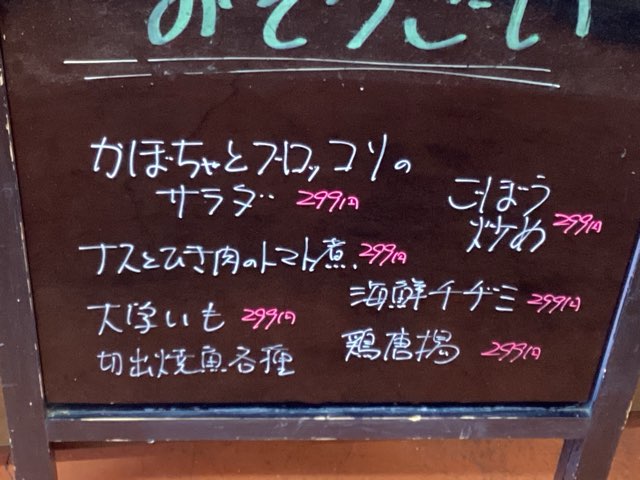 おそうざい
かぼちゃとブロッコリの
サラダ 299円
ごぼう
炒め 299円
ナスとひき肉のトマト煮 299円
海鮮チヂミ 299円
大学いも 299円
鶏唐揚 299円
切出焼魚各種